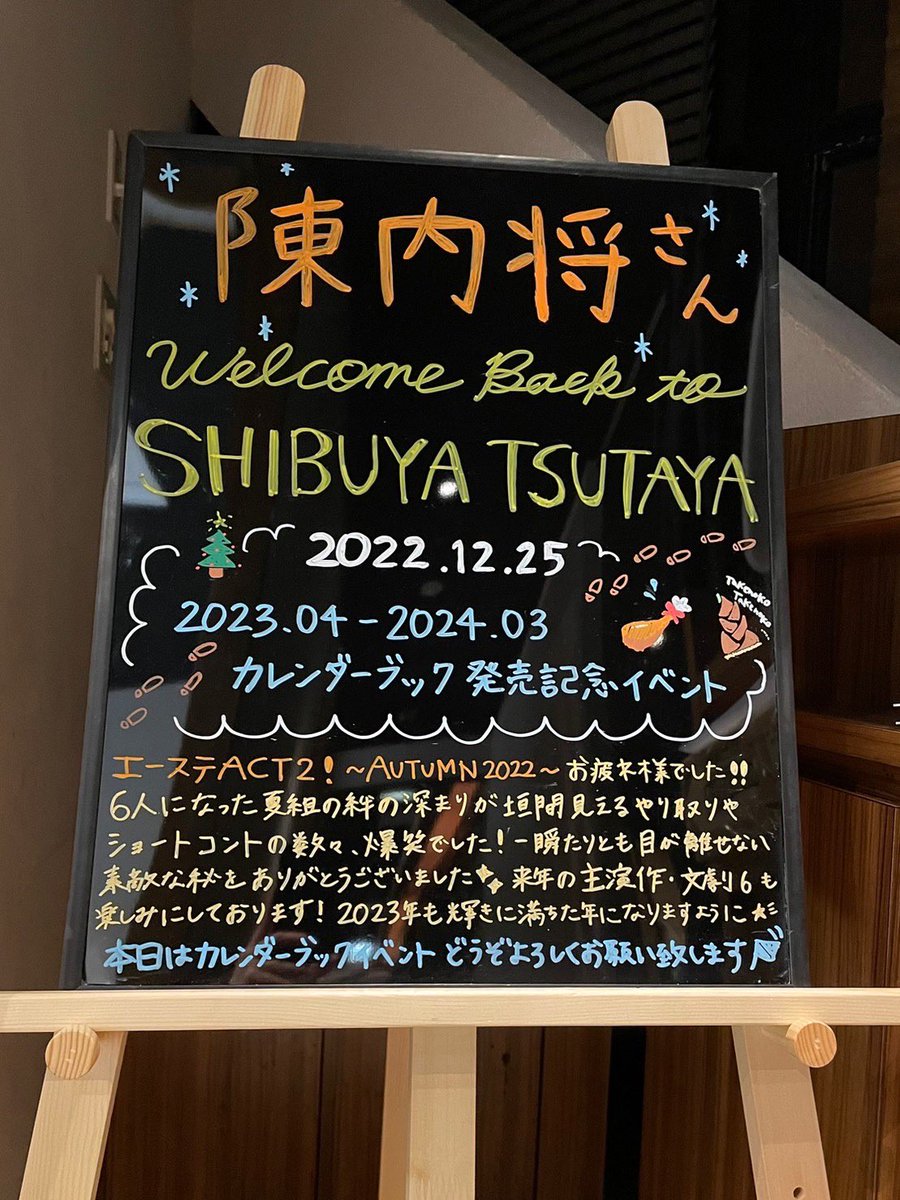 陳内将さん
Welcome Back to
SHIBUYA TSUTAYA
2022.12.25
2023.04-2024.03
TAKENOKO
TAKENOKO
カレンダーブック 発売記念イベント
エーステACT2!~AUTUMN2022~お疲れ様でした!!
6人になった夏組の絆の深まりが垣間見えるやり取りや
ショートコントの数々、爆笑でした!一瞬たりとも目が離せない
素敵な秋をありがとうございました 来年の主演作・文劇6も
楽しみにしております!2023年も輝きに満ちた年になりますように☆彡
本日はカレンダーブックイベント どうぞよろしくお願い致します